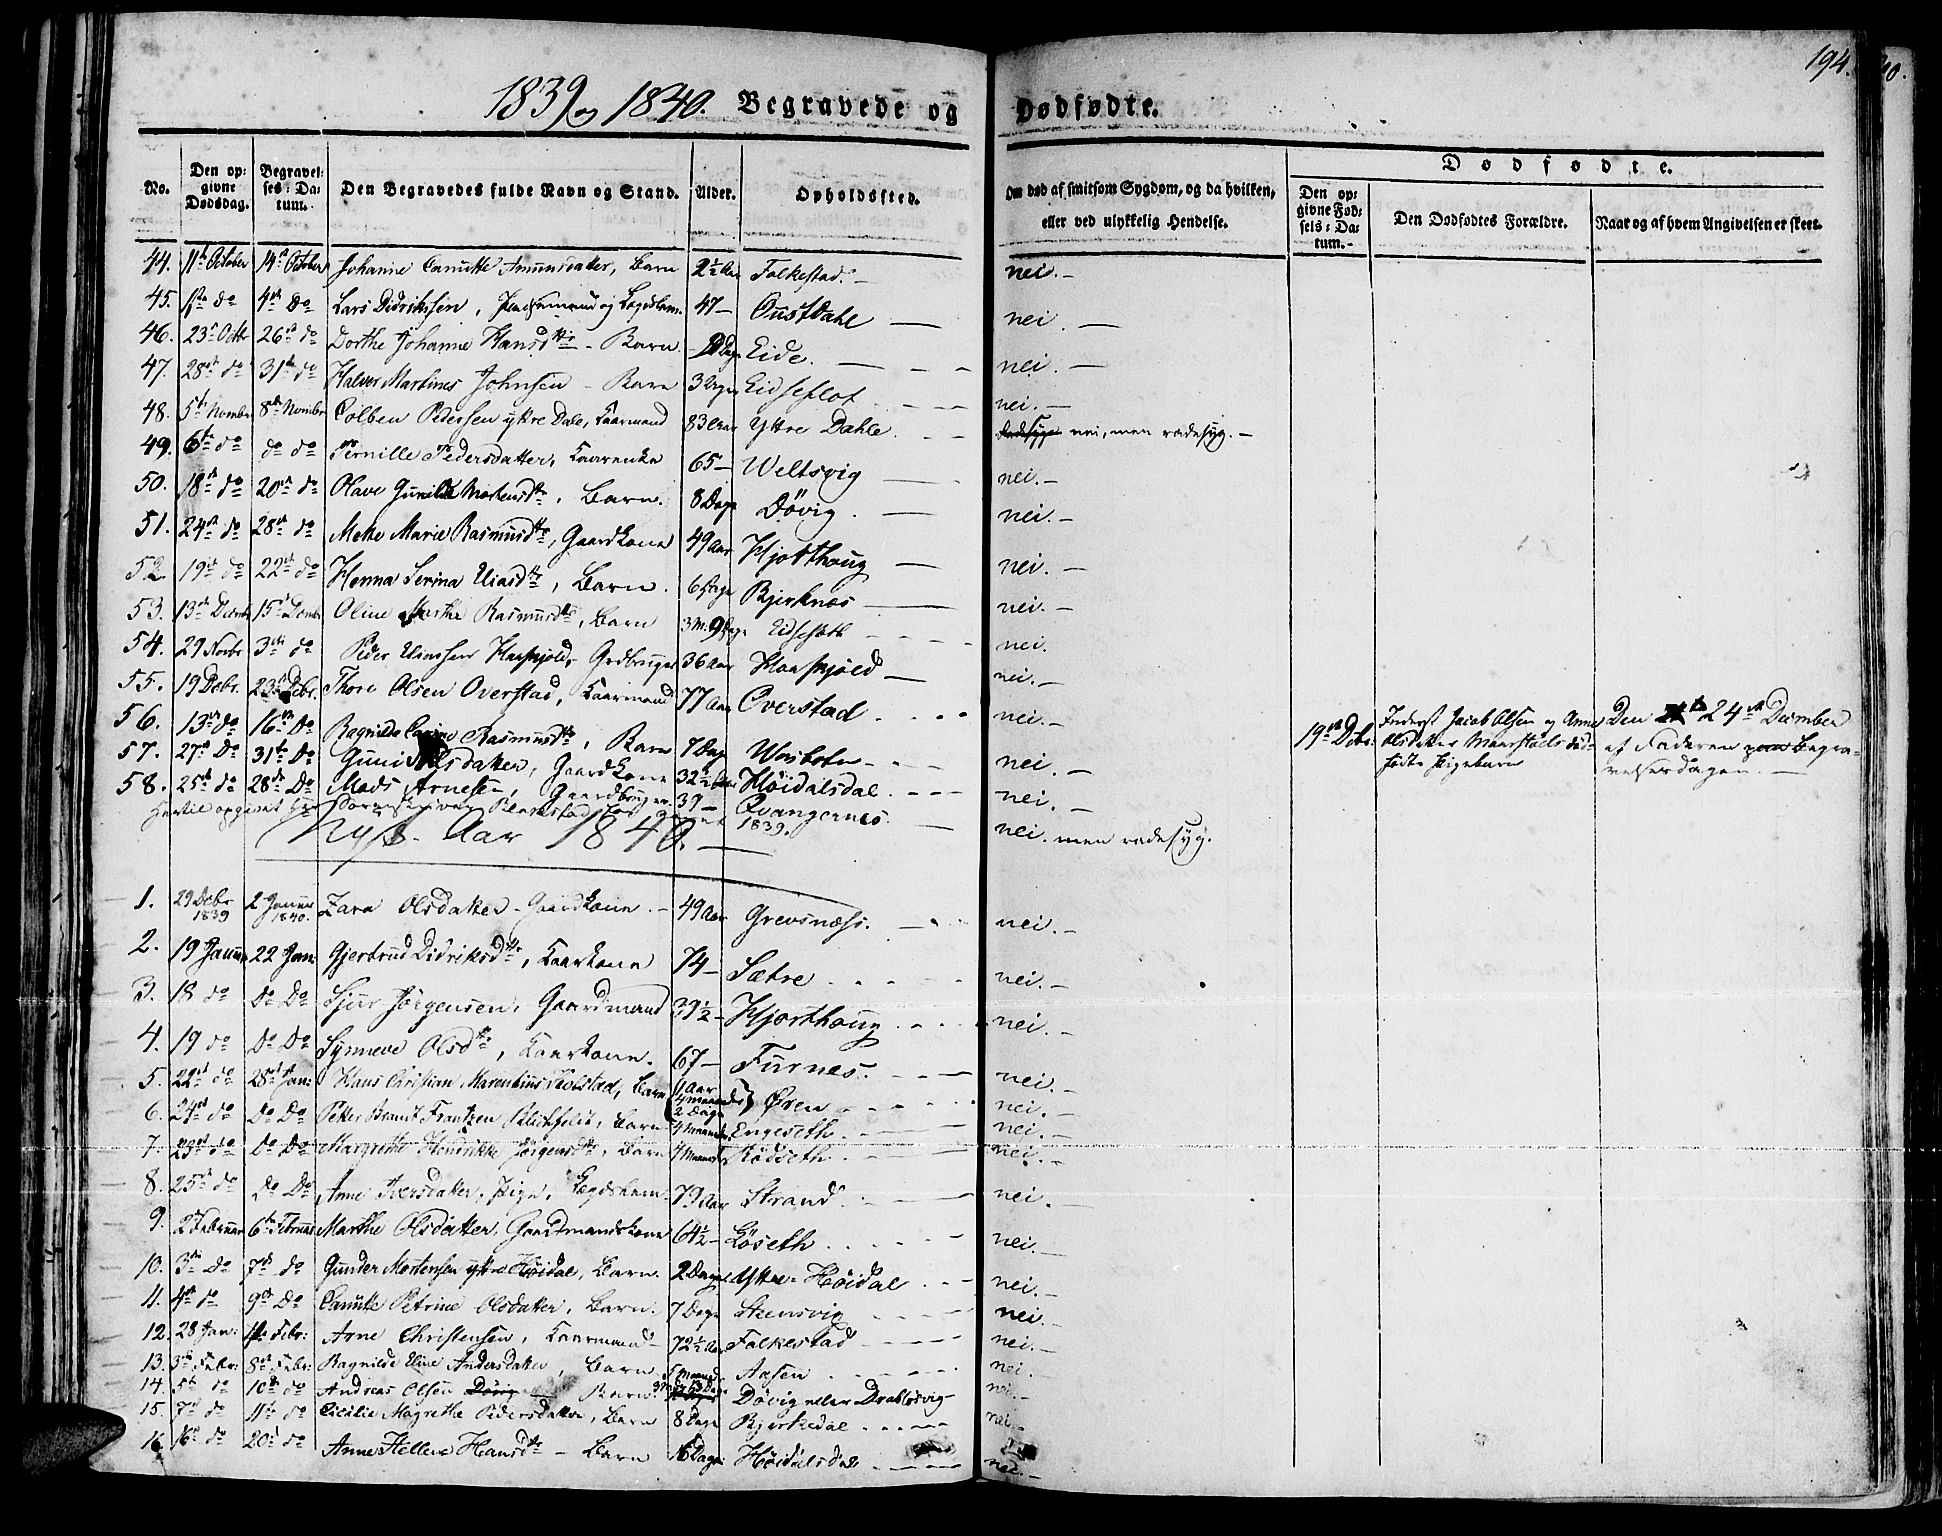 194.
1839 og 1840. Begravede og Dødfødte.
No. | Den opgivne Dødsdag. | Begravelses-Datum. | Den Begravedes fulde Navn og Stand. | Alder. | Opholdssted. | Om død af smitsom Sygdom, og da hvilken, eller ved ulykkelig Hendelse. | Dødfødte. | Den opgivne Fødsels-Datum. | Den Dødfødtes Forældre. | Naar og af hvem Angivelsen er skeet.
44. 11te October 14de October Johanne Canutte Amunsdatter, Barn 2½ Aar Falkestad. nei.
45. 1ste do 4de Do Lars Didriksen, og Lægdslem. 47 Oustdahl nei.
46. 23de Octbr 26de do Dorthe Johanne Hansdtr Barn Dage Eide. nei.
47. 28de do 31te do Halver Martines Johnsen Barn 3 Eidseflot nei.
48. 5te Novembr 8de Novembr Colben Pedersen yttre Dale, Kaarmand 83 Aar Yttre Dahle. nei, men radesyg.
49. 6te do do do Pernille Pedersdatter, Kaarenke 65 Weltsvig nei.
50. 18de do 20de do Olave Gunilde Mortensdtr, Barn. 8 Dage Døvig. nei.
51. 24de do 28de do Mette Marie Rasmusdtr, Gaardkone 49 Aar Hjorthoug nei.
52. 19de do 22de do Henna Serina Eliasdtr, Barn. 6 Dage Bjerknes nei.
53. 13de Decembr 15de Decembr Oline Marthe Rasmusdtr, Barn 3 M. 9 Dage Eidsefloth nei.
54. 29 Novbr 3die do Peder Eliassen Haaskjold, Grdbruger 36 Aar Haaskjold nei.
55. 19 Debr. 23de Debr. Thore Olsen Overstad, Kaarmand 77 Aar Overstad nei.
56. 13de do 16de Do Ragnilde Carine Rasmusdtr, Barn 7 Dage nei.
57. 27de Do 31te Do Guni Olsdatter, Gaardkone 32½ Aar Høidalsdal nei.
58. 25de do 28de Do Mads Arnesen, Gaardbruger 39 Qvangernes. nei. men radesyg.
19de Debr: Inderst Jacob Olsen og Anne Olsdatter Maarstads dødfødte Pigebarn Den 24de December af Faderen paa Begravelsesdagen.
Hertil opgivet for Aaret 1839.
Nyt Aar 1840.
1. 29 Debr 1839 2 Januar 1840. Zara Olsdatter Gaardkone 49 Aar Grevsnæss. nei.
2. 19 Januar 22 Jan: Gjertrud Didriksdtr, Kaarkone 74 Sætre nei.
3. 18 do Do Do Sjur Jørgensen, Gaardmand 39½ Hjorthoug nei.
4. 19 do Do Do Synneve Olsdtr, Kaarkone. 67 Furnes. nei.
5. 22de do 28de Jan: Hans Christian Marentius Kolstad, Barn 1 Aar 4 maaneder 2 Dage Øren nei.
6. 24de do Do Do Petter Brandt Frantzen Blichfeld, Barn 4 Maaneder Engeseth. nei.
7. 23de do Do Do Margrethe Hendrikke Jørgensdtr, Barn Maaneder Rødseth. nei.
8. 25de do Do Do Anne Iversdatter, Pige, Lægdslem 79 Aar Strand nei.
9. 2 Februar 6te Februar Marthe Olsdatter, Gaardmandskone 64½ Løseth nei.
10. 3die Do 7de do Gunder Mortensen yttre Høidal, Barn. 2 Dage Yttre Høidal nei.
11. 4de do 9de Do Canutte Petrine Olsdatter, Barn. 7 Dage Steensvig nei.
12. 28 Jan: Febr: Arne Christensen, Kaarmand 72½ Aar Falkestad nei.
13. 3de Febr: 8de Febr: Ragnilde Eline Andersdatter, Barn 5 Maaned Aasen nei.
14. 5te do 10de do Andreas Olsen Døvig Barn Døvig eller Drabløsvig nei.
15. 7de do 11te do Cicilie Magrethe Pedersdatter, Barn 8 Dage Bjerkedal nei.
16. 16de do 20de do Anne Hellene Hansdtr Barn 16 Dage Høidalsdal nei.